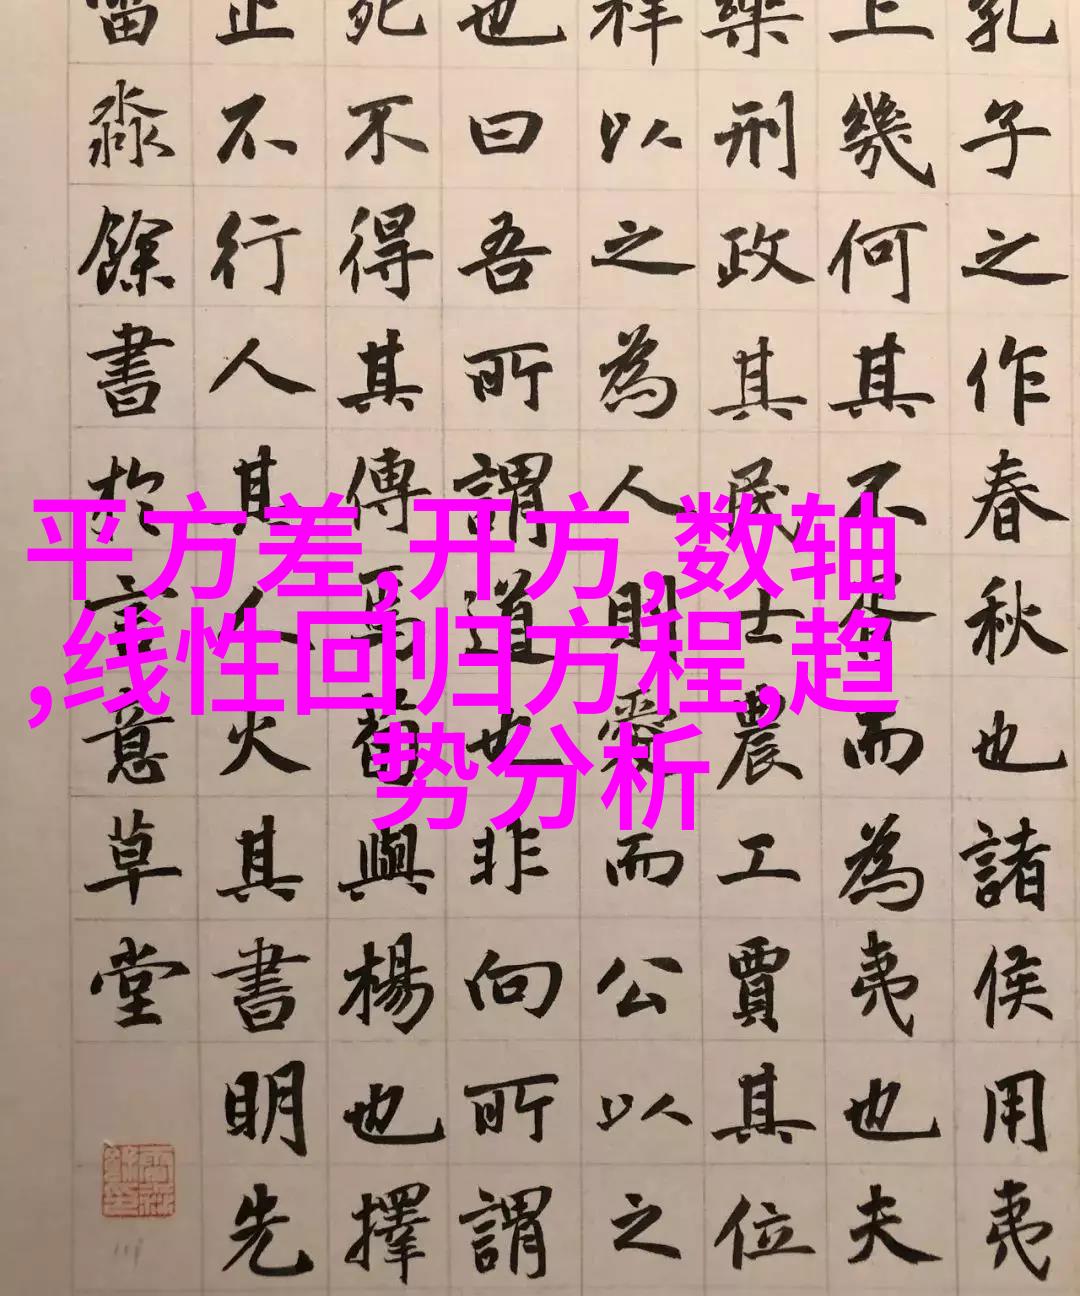 孔子之作春秋也諸侯用夷
上幾何其不而為夷也夫
樂刑政其民士農工賈其位
祥以之為人則愛而公以之
也曰吾所謂道也非向所謂
死不得其傳焉荀與楊也擇
止不行人其人火其書明先
淼餘書於意草堂
平方差,开方,数轴
,线性回归方程,趋
势分析